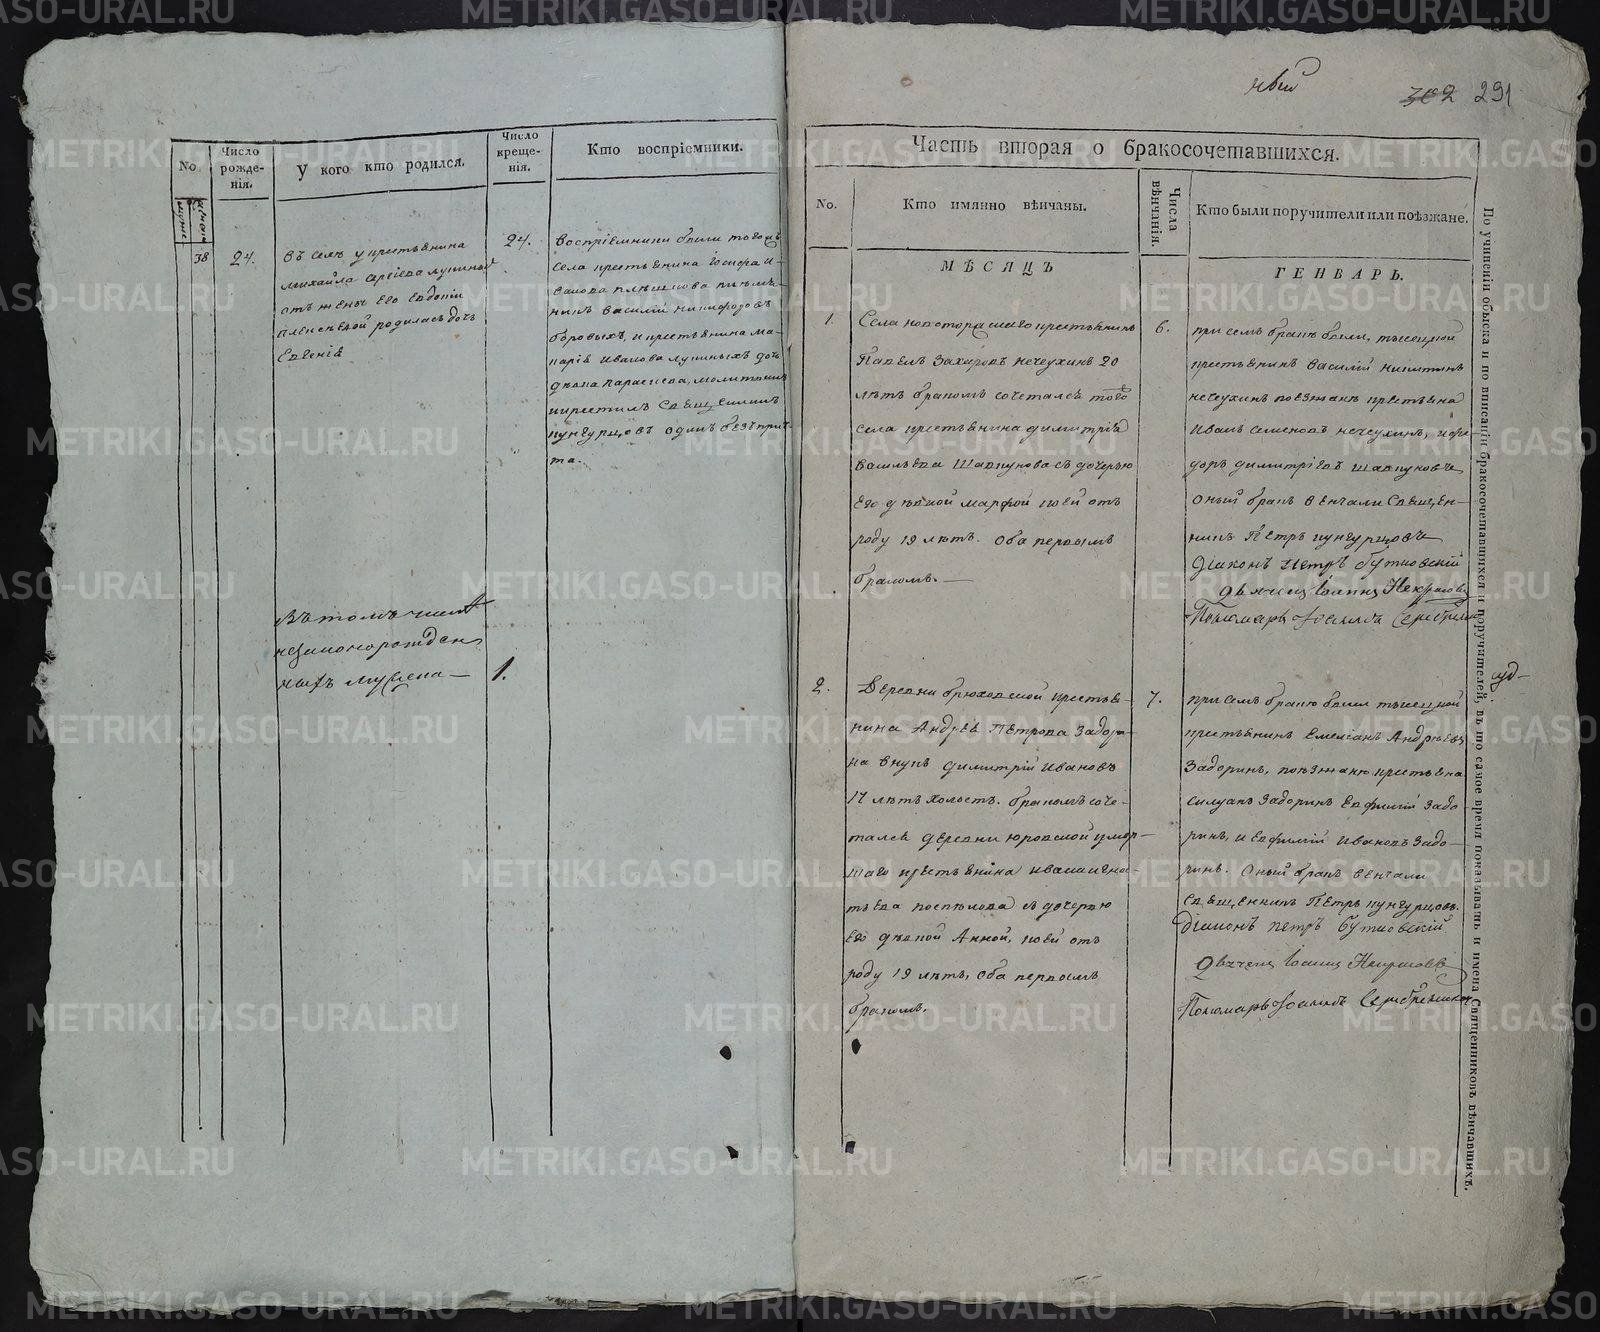 No
Число рожде-нія.
У кого кто родился.
Число креще-нія.
Кто воспріемники.
38
24.
въ селѣ у крестьянина
Михайла
отъ жены его Евдокіи
родилась дочь
Евгенія
24.
воспріемники были того жъ
села крестьянина
Василій Никифоровъ
Боровыхъ, и крестьянина
Иванова дочь
дѣвка Параскева, молитвилъ
и крестилъ Свящ.
Кунгурцовъ одинъ безъ прич-
та.
Въ томъ числѣ
незаконорожден
ныхъ мужеска —
1.
302 291
Часть вторая о бракосочетавшихся.
No.
Кто имянно вѣнчаны.
Числа вѣнчанія.
Кто были поручители или поѣзжане.
МѢСЯЦЪ
ГЕНВАРЬ.
1.
Села крестьянинъ
Павелъ Захаровъ Нечеухинъ 20
лѣтъ бракомъ сочетался того
села крестьянина Димитрія
Васильева Шавкунова съ дочерью
его дѣвкой Марфой коей отъ
роду 19 лѣтъ. Оба первымъ
бракомъ. —
6.
при семъ бракѣ были, тысецкой
крестьянинъ Василій Никитинъ
Нечеухинъ поезжана крестьяна
Иванъ Семеновъ Нечеухинъ,
Димитріевъ Шавкуновъ
оный бракъ венчали Священ-
никъ Петръ Кунгурцовъ
Діаконъ Петръ Бутковскій
Дьячекъ Іоаннъ Некрасовъ
Пономарь
2.
Деревни Брюховской крестья-
нина Андрея Петрова Задори-
на внукъ Димитрій Ивановъ
17 лѣтъ холостъ. бракомъ соче-
тался деревни Юровской умер-
шаго крестьянина Ивана Игна-
тьева Поспѣлова съ дочерью
его дѣвкой Анной, коей отъ
роду 19 лѣтъ, оба первымъ
бракомъ.
7.
при семъ браке были тысецкой
крестьянинъ Емеліанъ Андреевъ
Задоринъ, поезжана крестьяна
Силуанъ Задоринъ Евфимій Задо-
ринъ, и Евфимій Ивановъ Задо-
ринъ. Оный бракъ венчали
Священникъ Петръ Кунгурцовъ.
Діаконъ Петръ Бутковскій
Дьячекъ Іоаннъ Некрасовъ
Пономарь
По учиненіи обыска и по вписаніи бракосочетавшихся и поручителей, въ то самое время показывать и имена Священниковъ вѣнчавшихъ.
METRIKI.GASO-URAL.RU